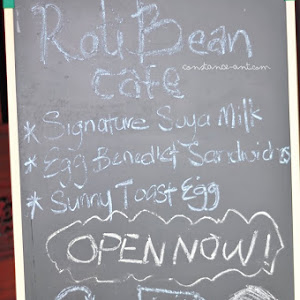 Roti Bean
cafe
constance-ant.com
* Signature Soya Milk
* Egg Bened'ct Sandwidges
* Sunny Toast Egg
OPEN NOW!